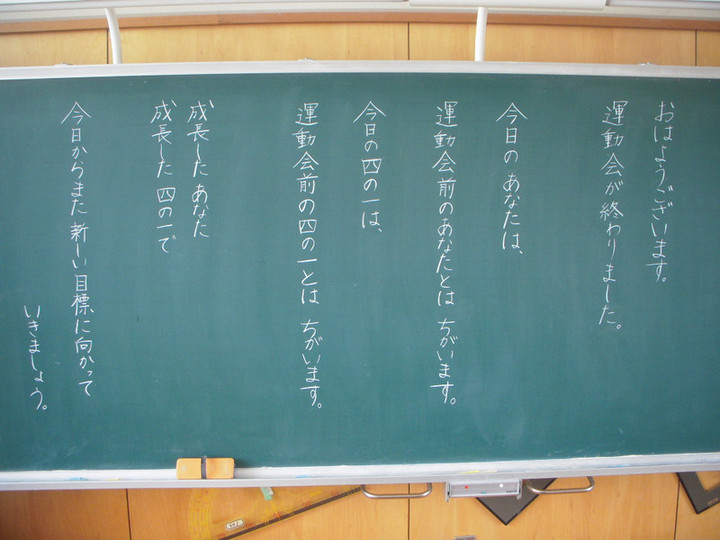 おはようございます。
運動会が終わりました。
今日の あなたは、
運動会前のあなたとは ちがいます。
今日の四の一は、
運動会前の四の一とは ちがいます。
成長した あなた
成長した 四の一で
今日からまた 新しい目標に向かって
いきましょう。